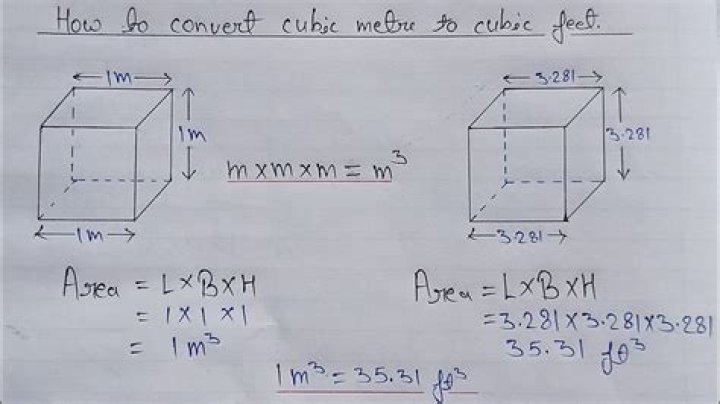 How to convert cubic metre to cubic feet.
1m
1m
1m
m×m×m = m³
3.281
3.281
3.281
Area = L×B×H
= 1×1×1
= 1m³
Area = L×B×H
=3.281×3.281×3.281
35.31 ft³
1m³=35.31 ft³